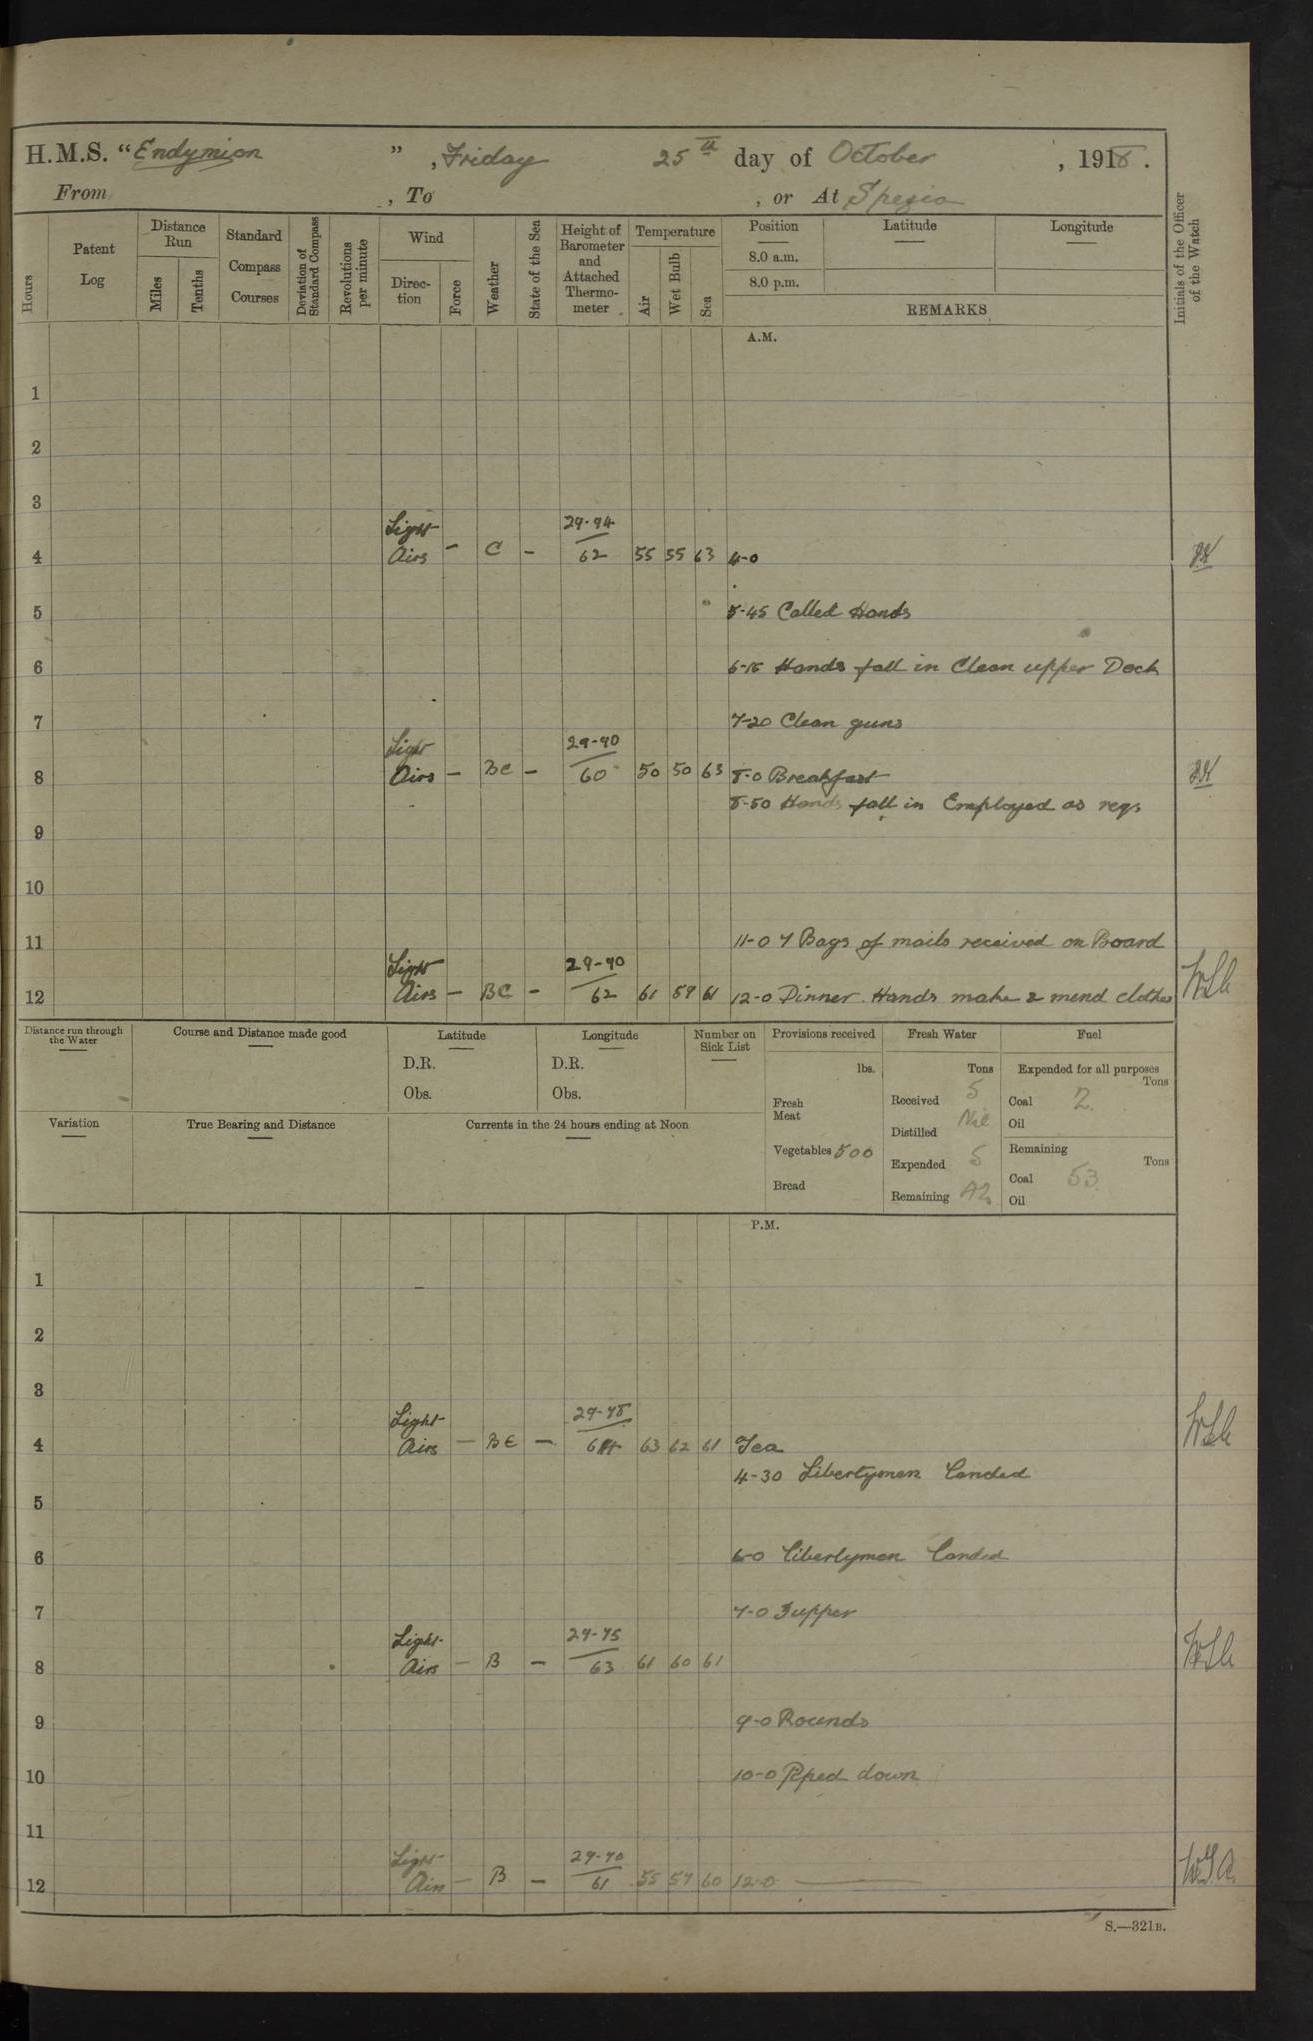 H.M.S. "Endymion", Friday 25th day of October, 1918.
From , To , or At Spezia
Hours
Patent Log
Distance Run
Miles
Tenths
Standard Compass Courses
Deviation of Standard Compass
Revolutions per minute
Wind
Direction
Force
Weather
State of the Sea
Height of Barometer and Attached Thermometer
Temperature
Air
Wet Bulb
Sea
Position
Latitude
Longitude
8.0 a.m.
8.0 p.m.
REMARKS
Initials of the Officer of the Watch
A.M.
1
2
3
Light 29-94
4 Airs - C - 62 55 55 63 4-0
5 5-45 Called Hands
6 6-15 Hands fall in Clean upper Deck
7 7-20 Clean guns
Light 29-90
8 Airs - BC - 60 50 50 63 8-0 Breakfast
8-50 Hands fall in Employed as reqs
9
10
11 11-0 7 Bags of mails received on Board
Light 29-90
12 Airs - BC - 62 61 59 61 12-0 Dinner. Hands make & mend clothes
Distance run through the Water
Course and Distance made good
Latitude
D.R.
Obs.
Longitude
D.R.
Obs.
Number on Sick List
Provisions received
lbs.
Fresh Meat
Vegetables 500
Bread
Fresh Water
Tons
Received 5
Distilled Nil
Expended 5
Remaining 42
Fuel
Expended for all purposes
Tons
Coal 2
Oil
Remaining
Tons
Coal 53
Oil
Variation
True Bearing and Distance
Currents in the 24 hours ending at Noon
P.M.
1
2
3
Light
4 Airs - BC - 64 63 62 61 Tea
4-30 Libertymen Landed
5
6 6-0 Libertymen Landed
7 7-0 Supper
Light 29-95
8 Airs - B - 63 61 60 61
9 9-0 Rounds
10 10-0 Piped down
11
Light 29-90
12 Airs - B - 61 55 57 60 12-0
S.—321B.